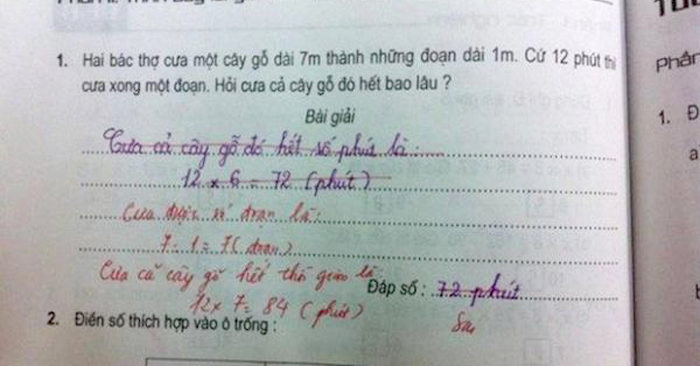 1. Hai bác thợ cưa một cây gỗ dài 7m thành những đoạn dài 1m. Cứ 12 phút thì
cưa xong một đoạn. Hỏi cưa cả cây gỗ đó hết bao lâu ?
Bài giải
Cưa cả cây gỗ đó hết số phút là:
12 x 6 = 72 (phút)
Cưa được số đoạn là:
7 : 1 = 7 (đoạn)
Cưa cả cây gỗ hết thời gian là:
Đáp số : 72 phút
12 x 7 = 84 (phút)
Sai
2. Điền số thích hợp vào ô trống :
Phần
1. Đ
a